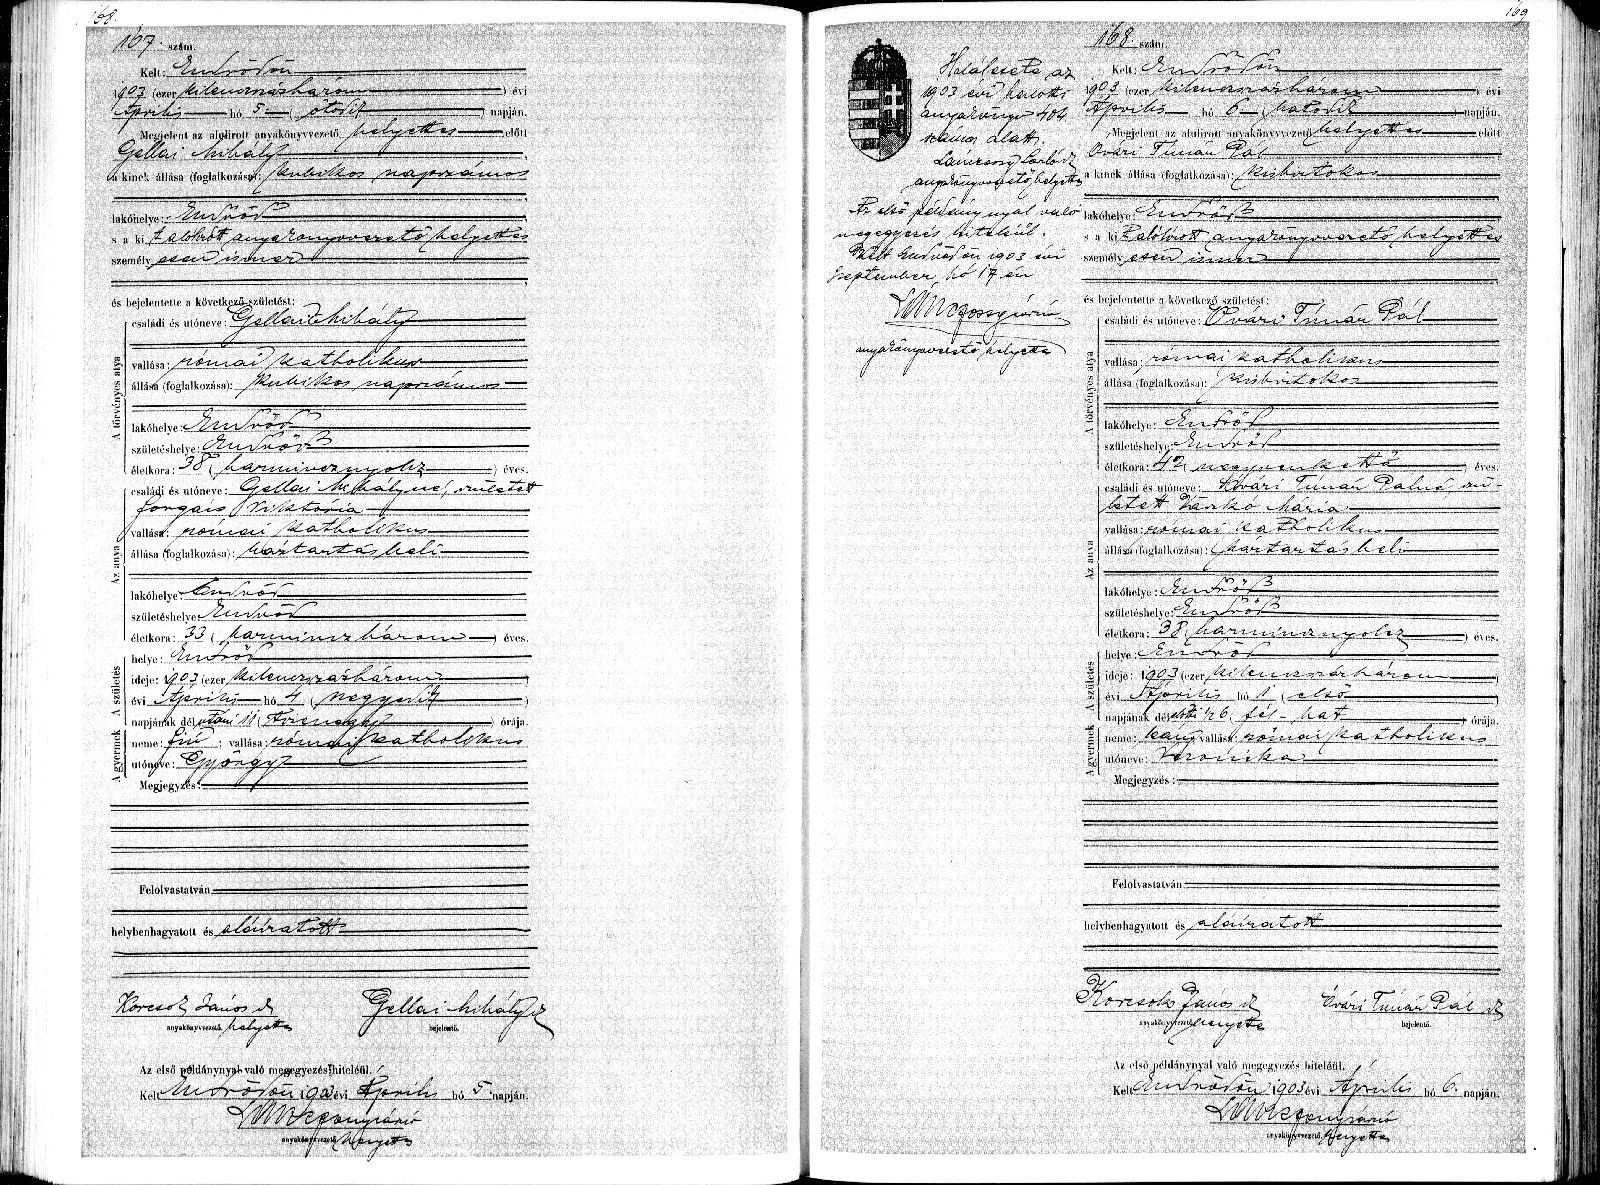 168.
167. szám.
Kelt: Endrődön
1903 (ezer kilenczszázhárom) évi
Április hó 5 (ötödik) napján.
Megjelent az alulirott anyakönyvvezető helyettes előtt
Gellai Mihály
a kinek állása (foglalkozása): kubikos napszámos
lakóhelye: Endrőd
s a kit alólirott anyakönyvvezető helyettes
személyesen ismer
és bejelentette a következő születést:
A törvényes atya
családi és utóneve: Gellai Mihály
vallása: római katholikus
állása (foglalkozása): kubikos napszámos
lakóhelye: Endrőd
születéshelye: Endrőd
életkora: 38 (harmincznyolcz) éves.
Az anya
családi és utóneve: Gellai Mihályné, született
forgais Viktória
vallása: római katholikus
állása (foglalkozása): háztartásbeli
lakóhelye: Endrőd
születéshelye: Endrőd
életkora: 33 (harminczhárom) éves.
A születés
helye: Endrőd
ideje: 1903 (ezer kilenczszázhárom)
évi Április hó 4 (negyedik)
napjának délutáni 11 (tizenegy) órája.
A gyermek
neme: fiú; vallása: római katholikus
utóneve: György
Megjegyzés:
Felolvastatván
helybenhagyatott és aláiratott
Korcsok János Gellai Mihály
anyakönyvvezető helyettes bejelentő.
Az első példánynyal való megegyezés hiteléül.
Kelt Endrődön 1903 évi Április hó 5 napján.
anyakönyvvezető helyettes
169
Halálesete az
1903 évi halotti
anyakönyv 404
számú alatt.
anyakönyvvezető helyettes
Az első példánynyal való
megegyezés hiteléül.
Kelt Endrődön 1903 évi
Szeptember hó 17 én
anyakönyvvezető helyettes
168. szám.
Kelt: Endrődön
1903 (ezer kilenczszázhárom) évi
Április hó 6 (hatodik) napján.
Megjelent az alulirott anyakönyvvezető helyettes előtt
Ővári Timár Pál
a kinek állása (foglalkozása): kisbirtokos
lakóhelye: Endrőd
s a kit alólirott anyakönyvvezető helyettes
személyesen ismer
és bejelentette a következő születést:
A törvényes atya
családi és utóneve: Ővári Timár Pál
vallása: római katholikus
állása (foglalkozása): kisbirtokos
lakóhelye: Endrőd
születéshelye: Endrőd
életkora: 42 (negyvenkettő) éves.
Az anya
családi és utóneve: Ővári Timár Pálné, szü-
letett Mária
vallása: római katholikus
állása (foglalkozása): háztartásbeli
lakóhelye: Endrőd
születéshelye: Endrőd
életkora: 38 (harmincznyolcz) éves.
A születés
helye: Endrőd
ideje: 1903 (ezer kilenczszázhárom)
évi Április hó 1 (első)
napjának délelőtti ½6 (fél-hat) órája.
A gyermek
neme: leány vallása: római katholikus
utóneve: Veronika
Megjegyzés:
Felolvastatván
helybenhagyatott és aláiratott
Korcsok János Ővári Timár Pál
anyakönyvvezető helyettes bejelentő.
Az első példánynyal való megegyezés hiteléül.
Kelt Endrődön 1903 évi Április hó 6. napján.
anyakönyvvezető helyettes